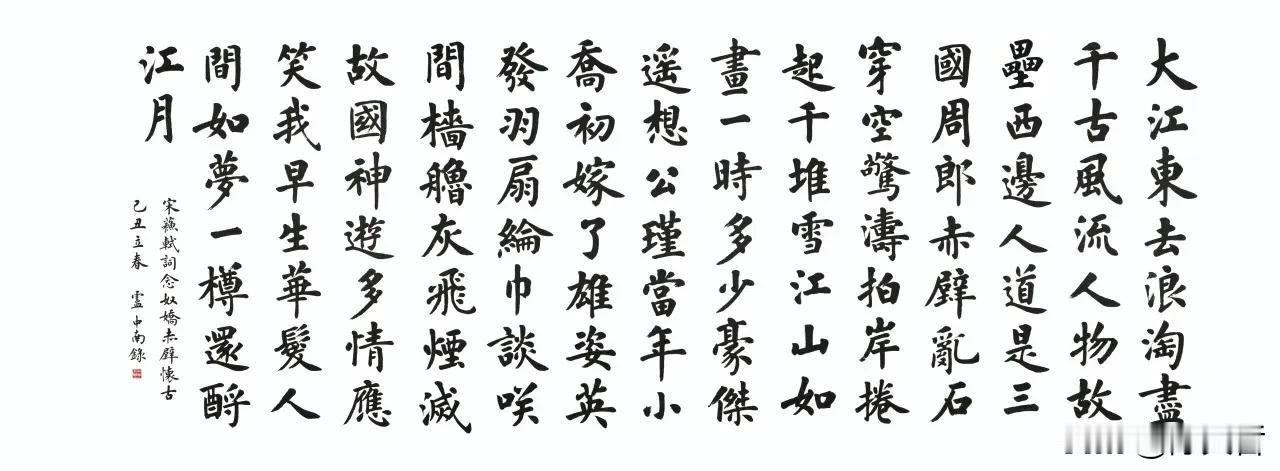 大江東去浪淘盡
千古風流人物故
壘西邊人道是三
國周郎赤壁亂石
穿空驚濤拍岸捲
起千堆雪江山如
畫一時多少豪傑
遥想公瑾當年小
喬初嫁了雄姿英
發羽扇綸巾談咲
間檣艫灰飛煙滅
故國神遊多情應
笑我早生華髮人
間如夢一樽還酹
江月
宋蘇軾詞念奴嬌赤壁懷古
己丑立春 盧中南錄